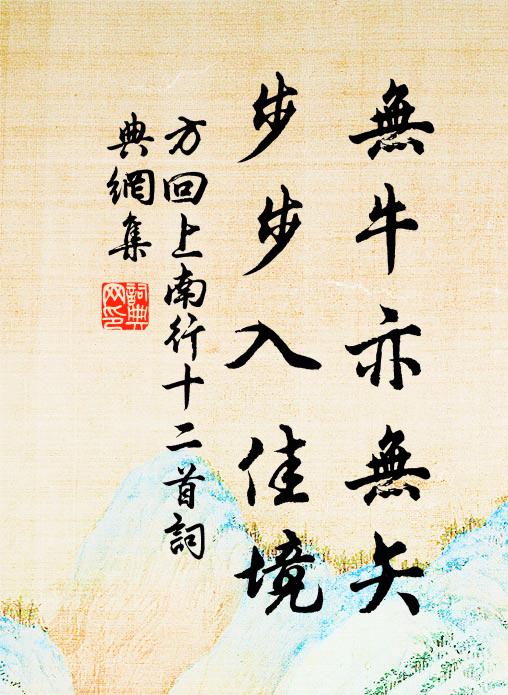 無牛亦無矢
步步入佳境
方回上南行十二首詞
典網集
詞典網印